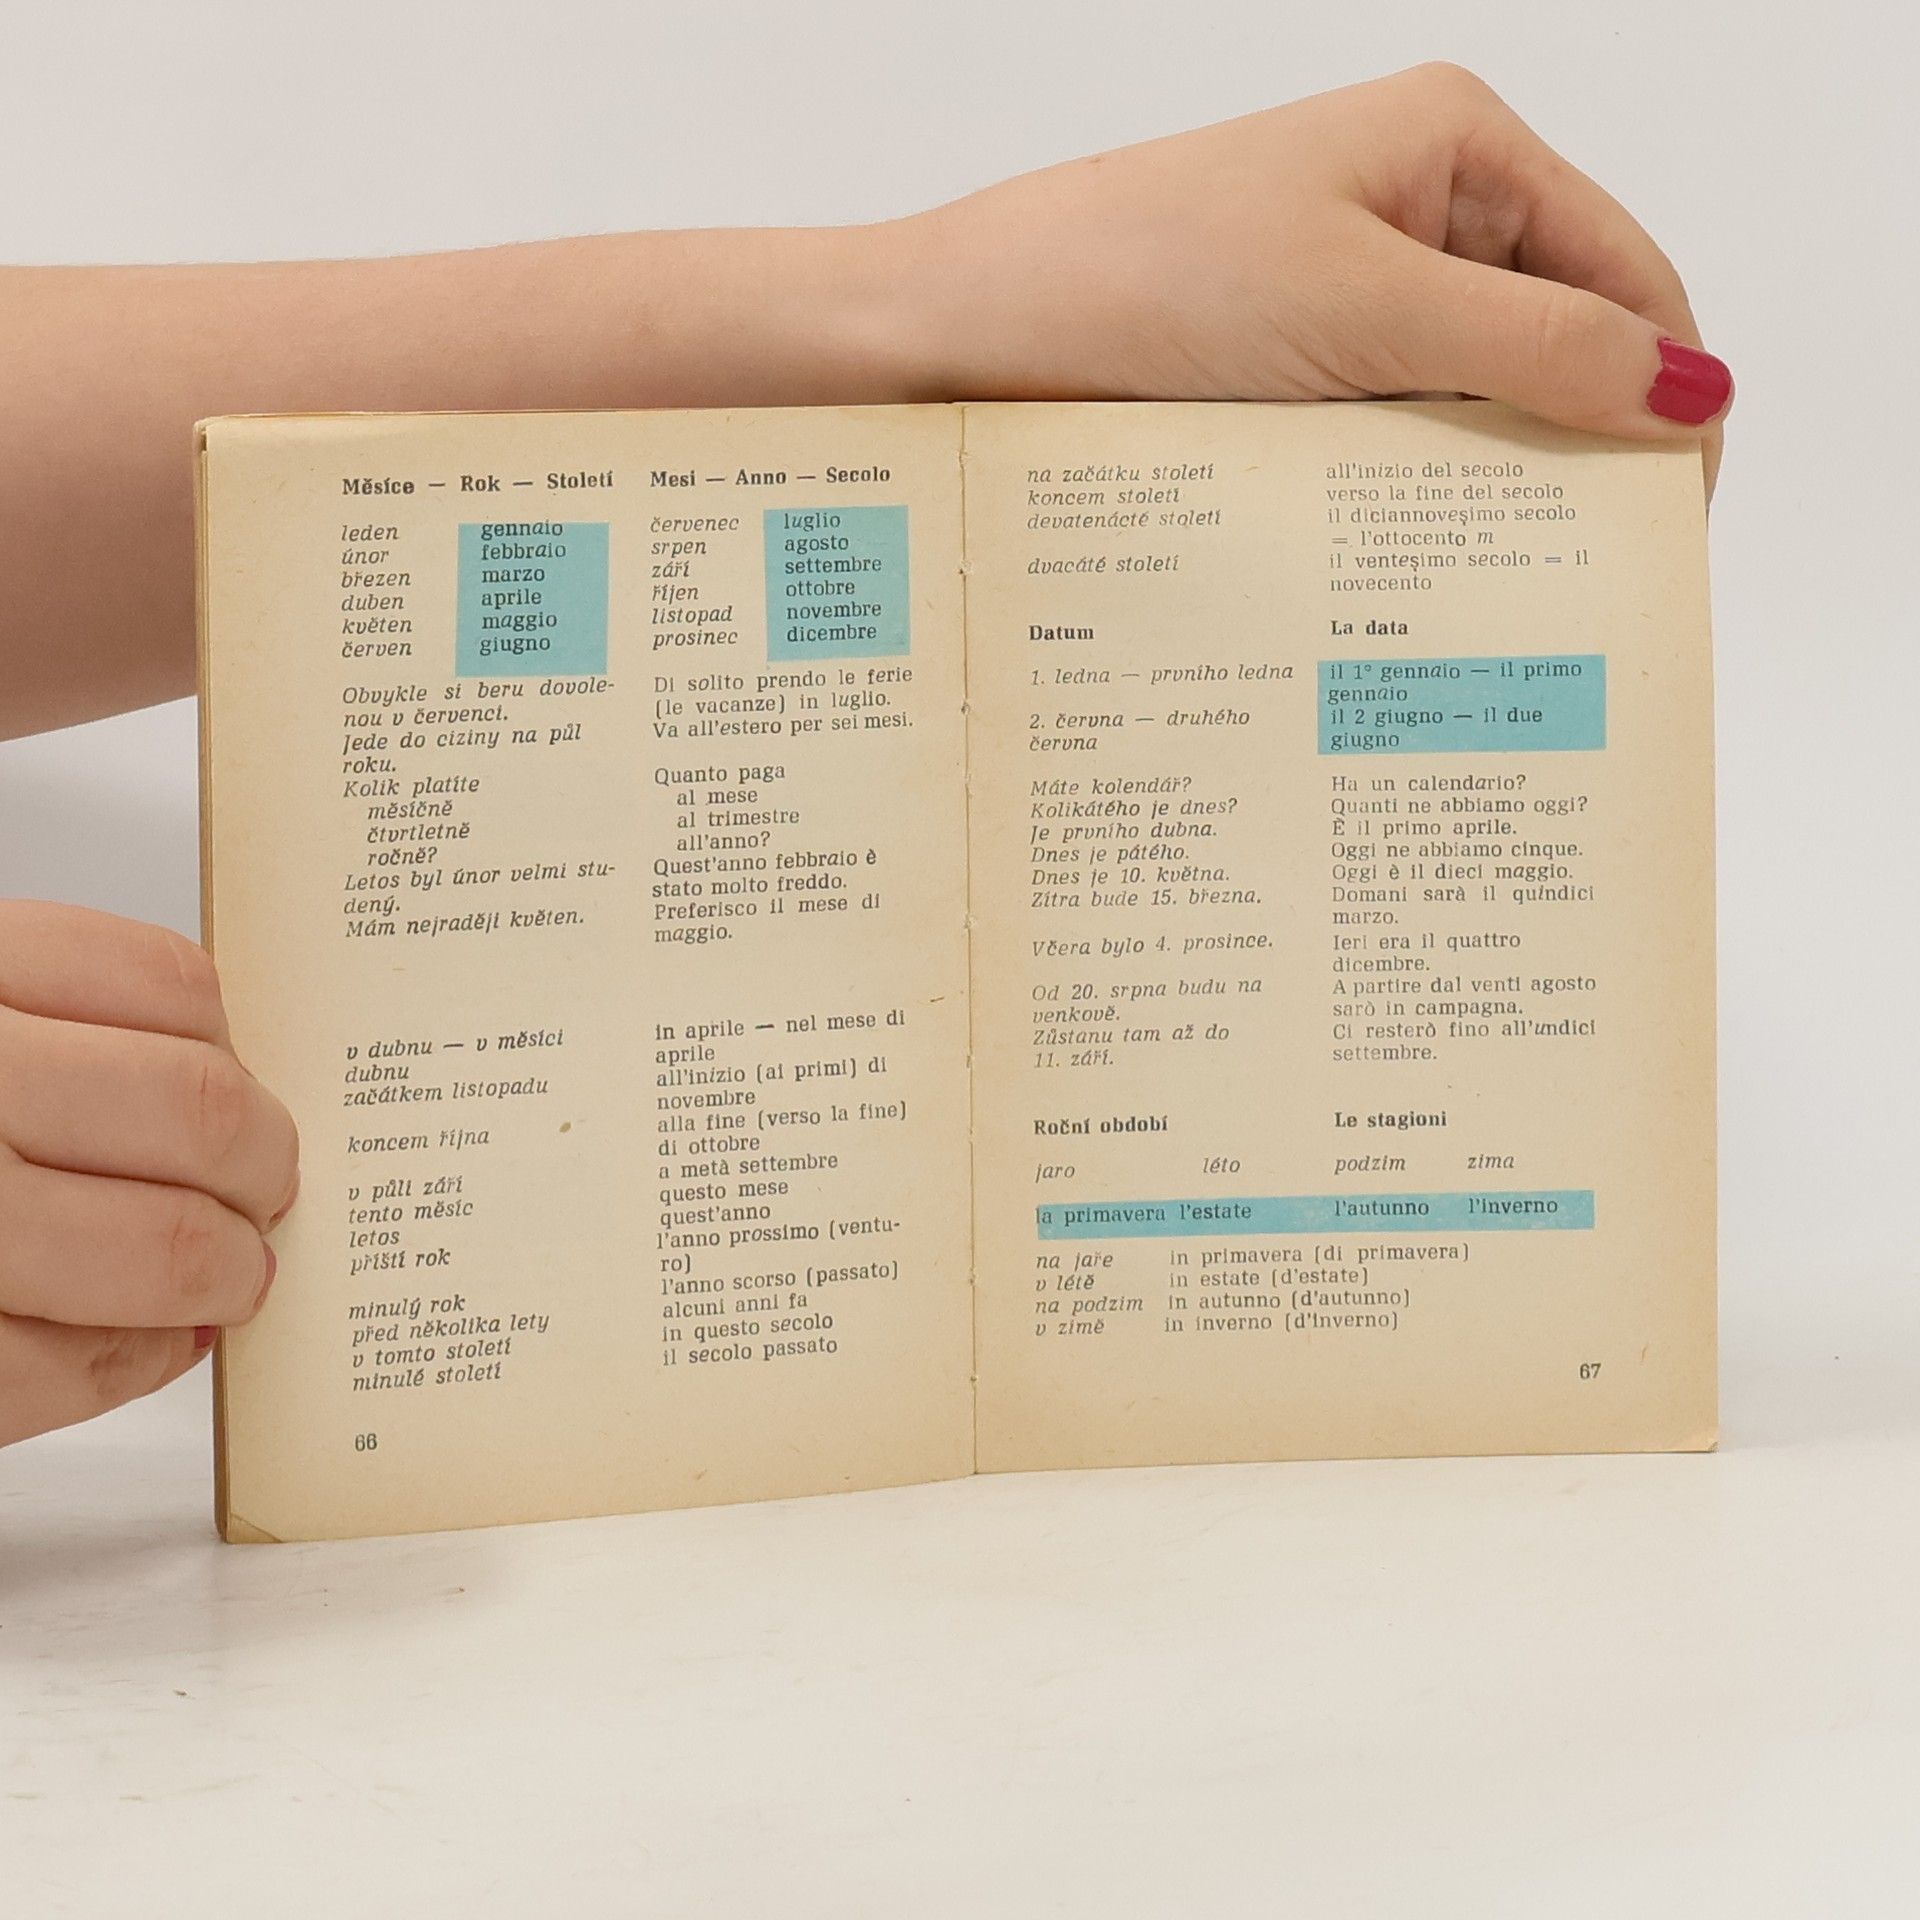 Měsíce — Rok — Století
leden gennaio
únor febbraio
březen marzo
duben aprile
květen maggio
červen giugno
Obvykle si beru dovole-
nou v červenci.
Jede do ciziny na půl
roku.
Kolik platíte
měsíčně
čtvrtletně
ročně?
Letos byl únor velmi stu-
dený.
Mám nejraději květen.
v dubnu — v měsíci
dubnu
začátkem listopadu
koncem října
v půli září
tento měsíc
letos
příští rok
minulý rok
před několika lety
v tomto století
minulé století
66
Mesi — Anno — Secolo
červenec luglio
srpen agosto
září settembre
říjen ottobre
listopad novembre
prosinec dicembre
Di solito prendo le ferie
(le vacanze) in luglio.
Va all'estero per sei mesi.
Quanto paga
al mese
al trimestre
all'anno?
Quest'anno febbraio è
stato molto freddo.
Preferisco il mese di
maggio.
in aprile — nel mese di
aprile
all'inizio (ai primi) di
novembre
alla fine (verso la fine)
di ottobre
a metà settembre
questo mese
quest'anno
l'anno prossimo (ventu-
ro)
l'anno scorso (passato)
alcuni anni fa
in questo secolo
il secolo passato
na začátku století
koncem století
devatenácté století
dvacáté století
all'inizio del secolo
verso la fine del secolo
il diciannoveşimo secolo
= l'ottocento m
il venteşimo secolo = il
novecento
Datum
1. ledna — prvního ledna
2. června — druhého
června
Máte kolendář?
Kolikátého je dnes?
Je prvního dubna.
Dnes je pátého.
Dnes je 10. května.
Zítra bude 15. března.
Včera bylo 4. prosince.
Od 20. srpna budu na
venkově.
Zůstanu tam až do
11. září.
La data
il 1° gennaio — il primo
gennaio
il 2 giugno — il due
giugno
Ha un calendario?
Quanti ne abbiamo oggi?
È il primo aprile.
Oggi ne abbiamo cinque.
Oggi è il dieci maggio.
Domani sarà il quindici
marzo.
Ieri era il quattro
dicembre.
A partire dal venti agosto
sarò in campagna.
Ci resterò fino all'undici
settembre.
Roční období Le stagioni
jaro léto podzim zima
la primavera l'estate l'autunno l'inverno
na jaře in primavera (di primavera)
v létě in estate (d'estate)
na podzim in autunno (d'autunno)
v zimě in inverno (d'inverno)
67